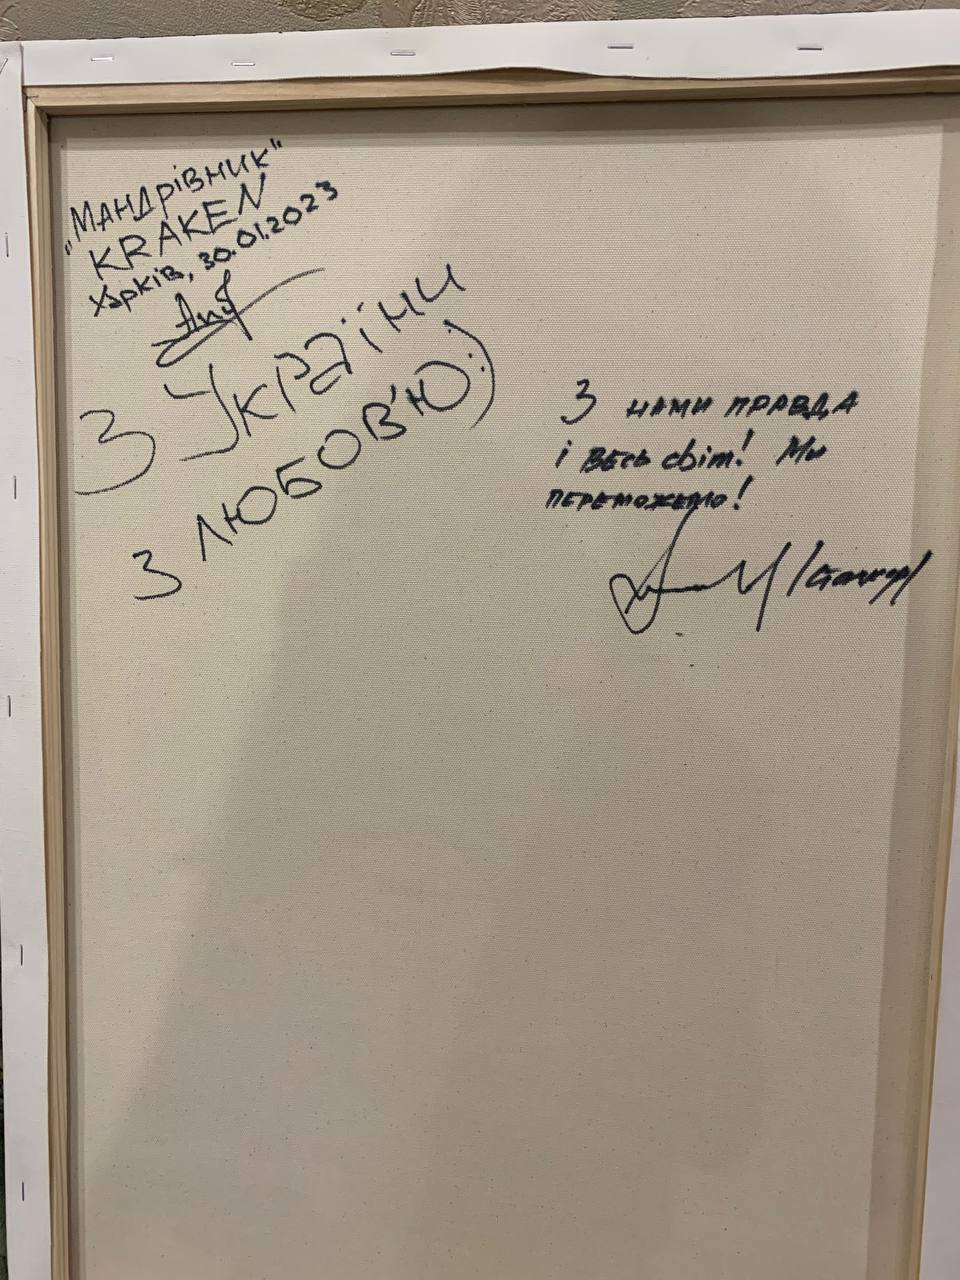 „Мандрівник"
KRAKEN
Харків, 30.01.2023
З України
з любов'ю:)
З нами правда
і весь світ! Ми
переможемо!